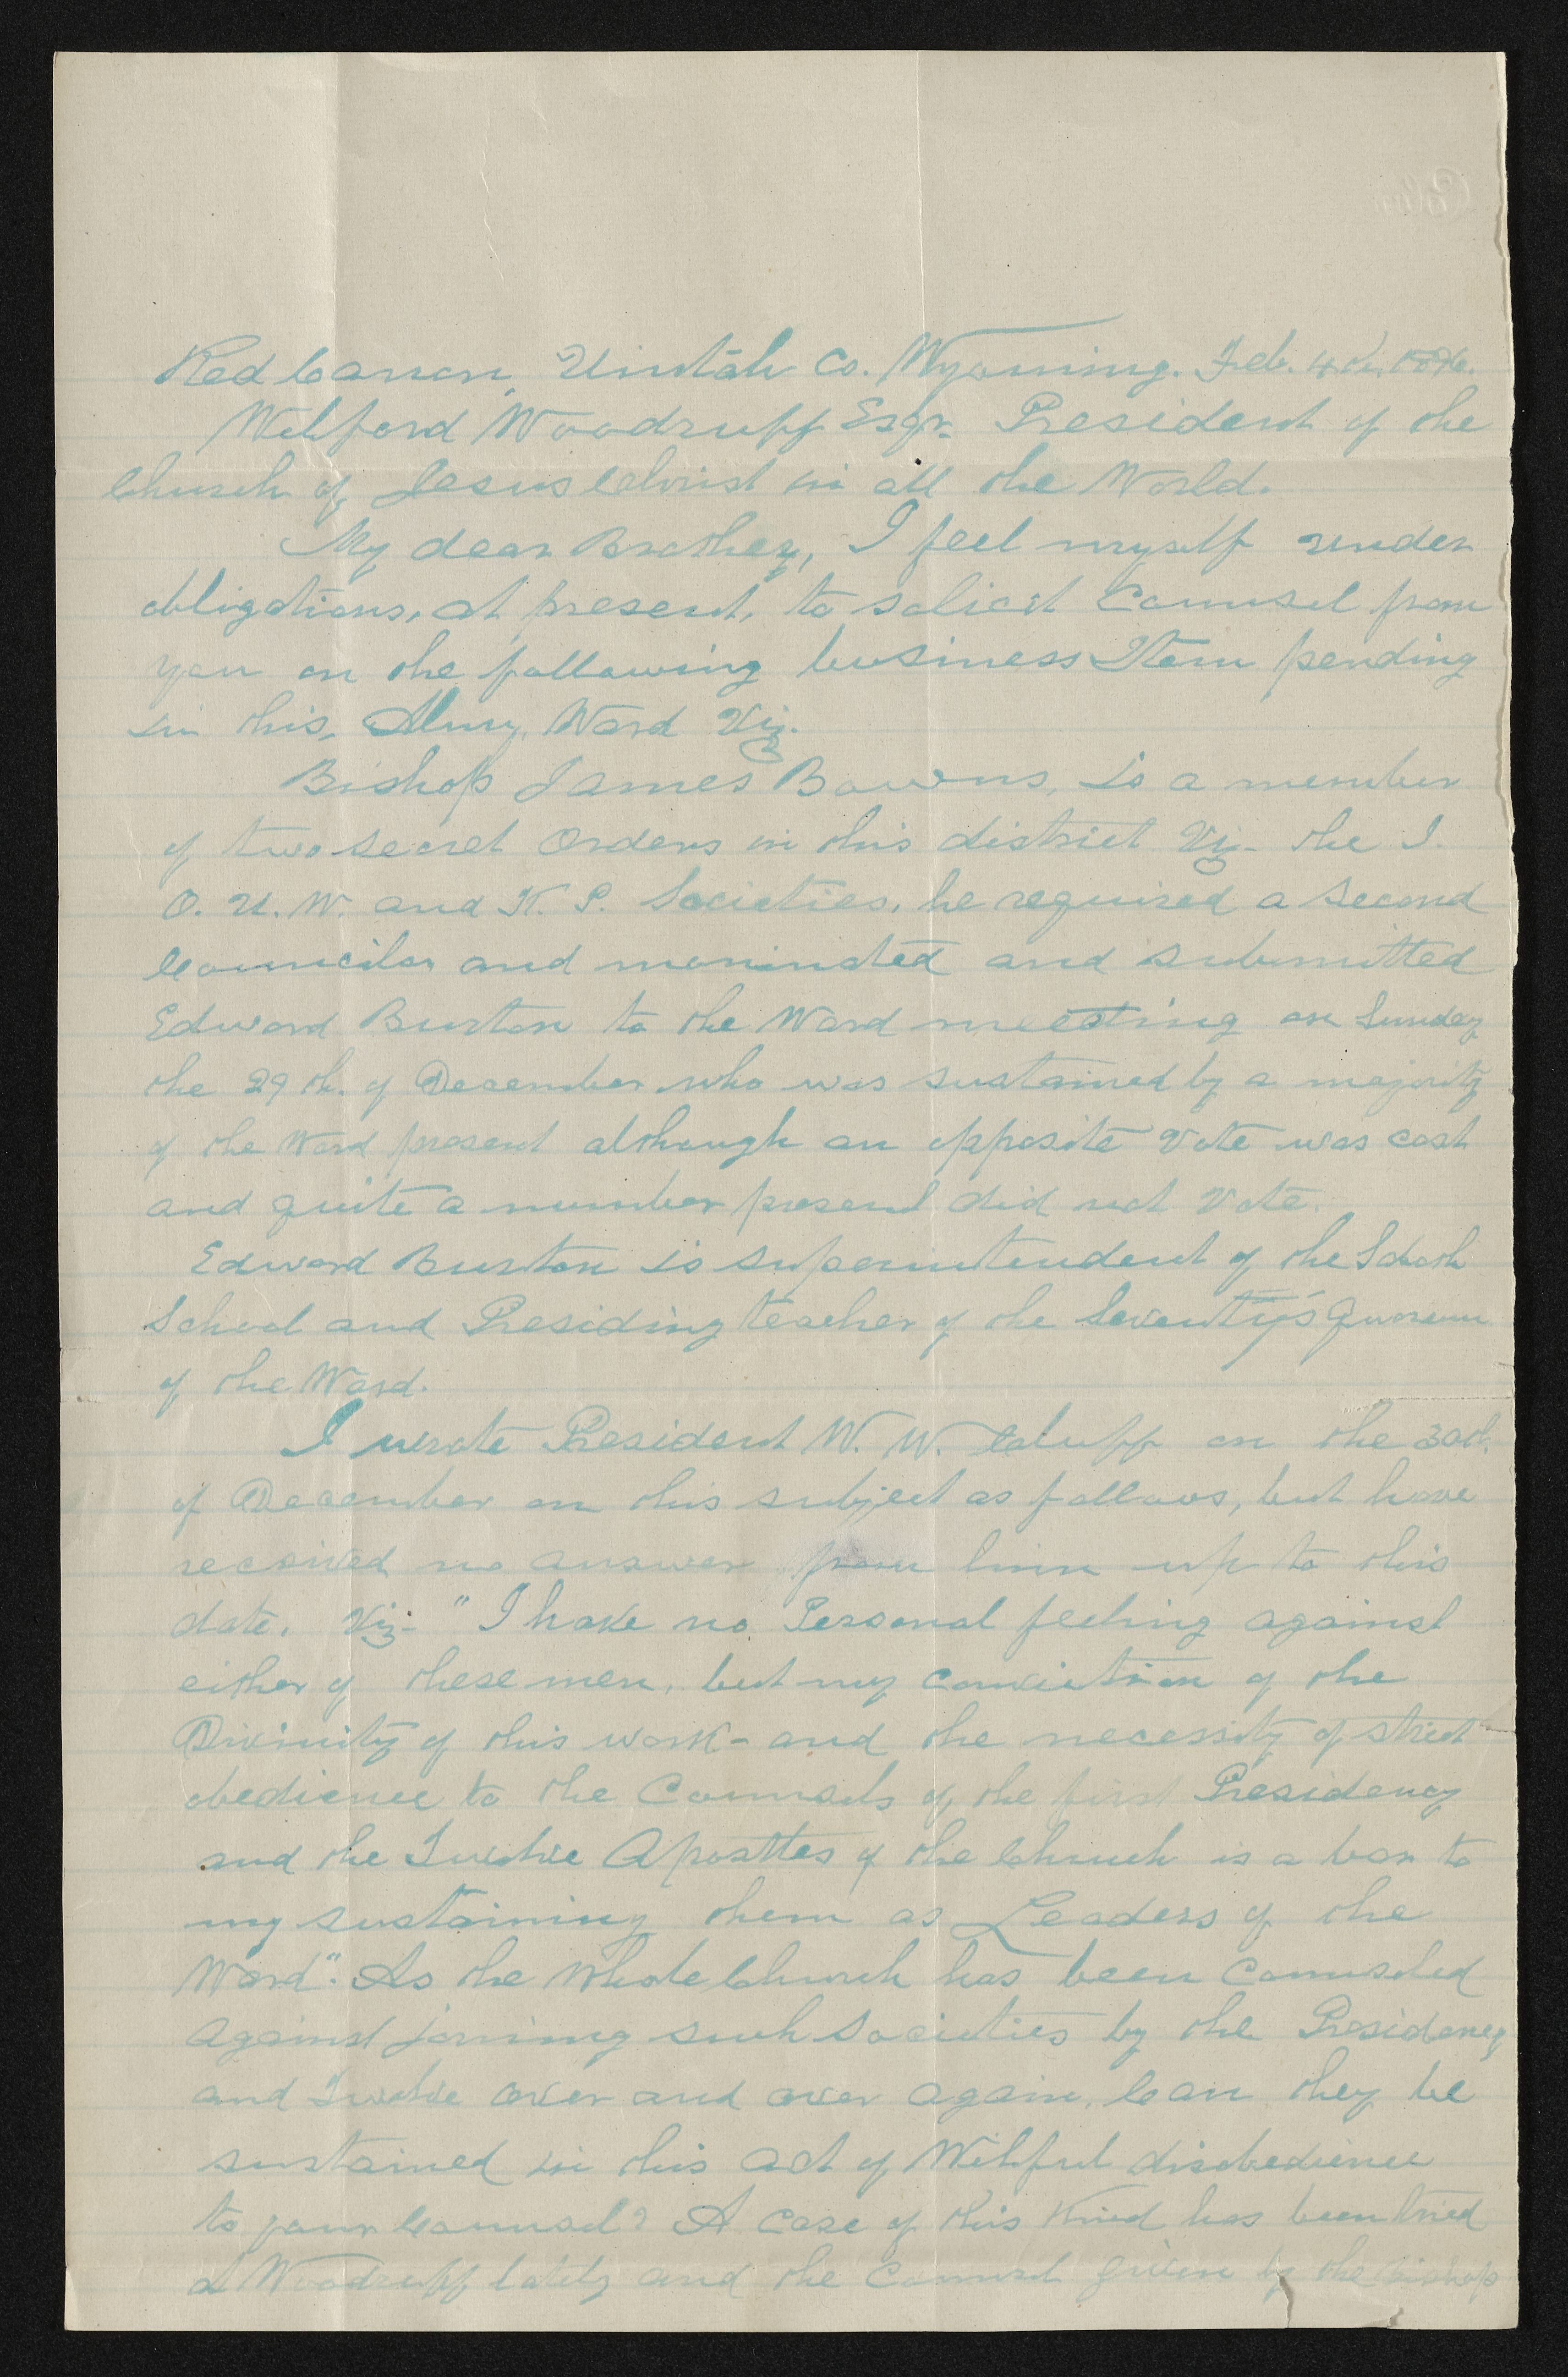 Red Canon, Uintah Co. Wyoming. Feb. 4th, 1896.
Wilford Woodruff Esqr. President of the
Church of Jesus Christ in all the World.
My dear Brother, I feel myself under
obligations, at present, to solicit Counsel from
you on the following business Item pending
in this, Almy, Ward Viz.
Bishop James Bowns, is a member
of two secret Orders in this district Viz- the I.
O. U. W. and K. P. Societies, he required a Second
Councilor and nominated and submitted
Edward Burton to the Ward meeting on Sunday
the 29th. of December who was sustained by a majority
of the Ward present although an opposite Vote was cast
and quite a number present did not Vote.
Edward Burton is superintendent of the Sabath
School and Presiding teacher of the Seventy's Quorum
of the Ward.
I wrote President W. W. Cluff on the 30th.
of December on this subject as follows, but have
received no answer from him up to this
date. Viz- "I have no Personal feeling against
either of these men, but my conviction of the
Divinity of this work- and the necessity of strict
obedience to the Counsels of the first Presidency
and the Twelve Apostles of the Church is a bar to
my sustaining them as Leaders of the
Ward". As the Whole Church has been Counseled
against joining such Societies by the Presidency
and Twelve over and over again, Can they be
sustained in this act of Wilful disobedience
to your Counsel? A Case of this Kind has been tried
at Woodruff lately and the Counsel given by the Bishop